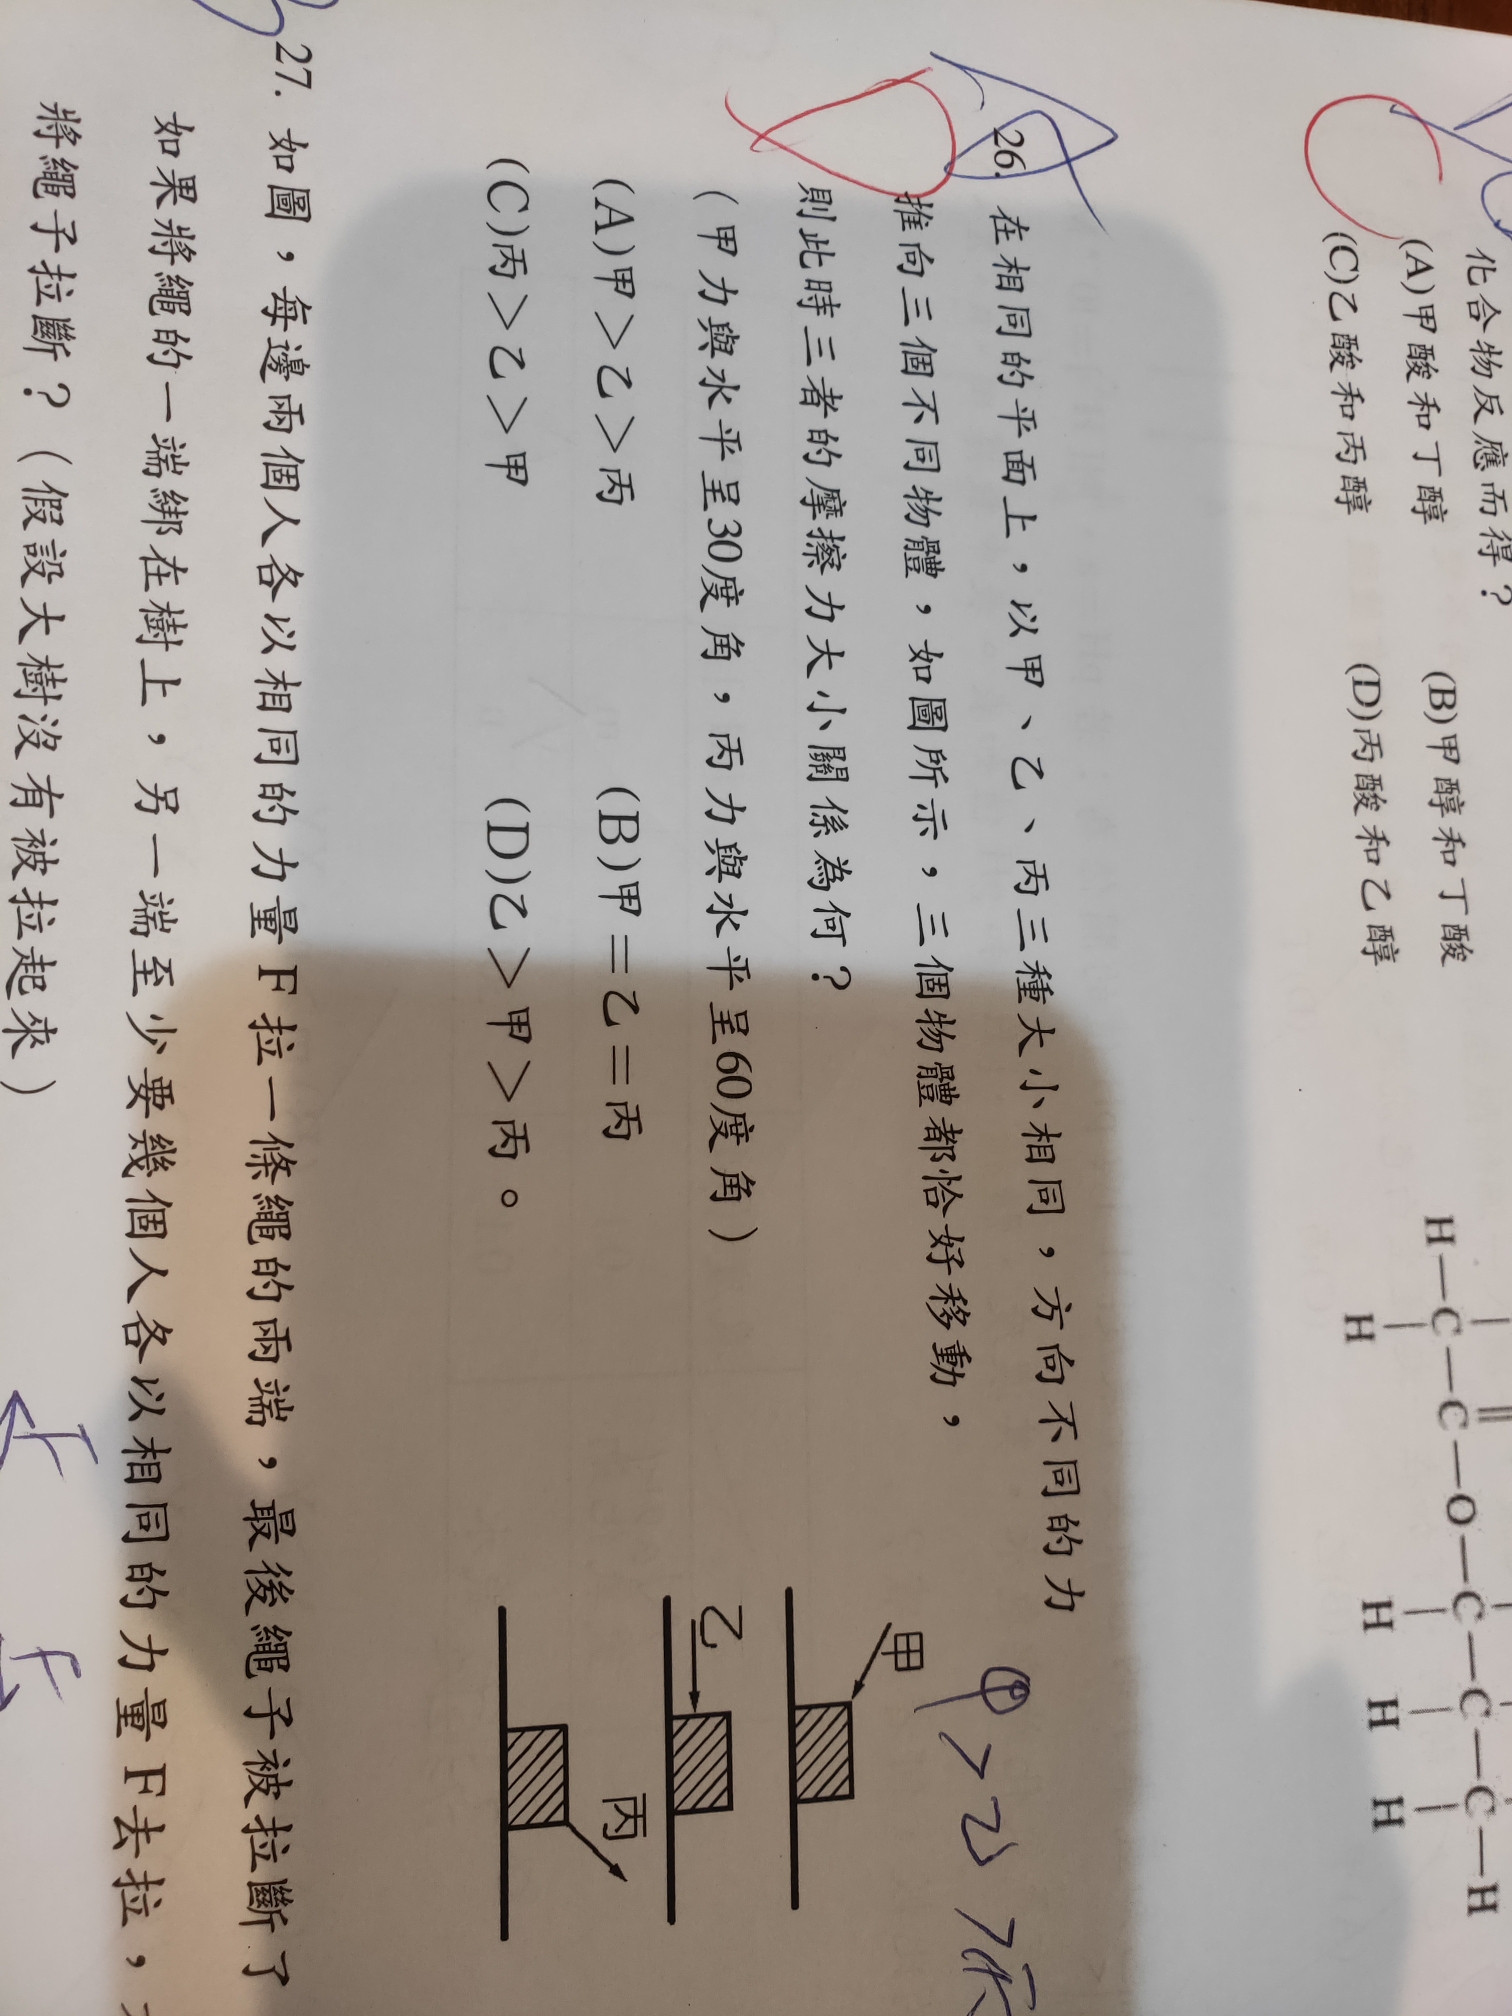 化合物反應而得？
(A)甲酸和丁醇 (B)甲醇和丁酸
(C)乙酸和丙醇 (D)丙酸和乙醇
H—C—C—O—C—C—C—H
H H H H
C
26. 在相同的平面上，以甲、乙、丙三種大小相同，方向不同的力
推向三個不同物體，如圖所示，三個物體都恰好移動，
則此時三者的摩擦力大小關係為何？
（甲力與水平呈30度角，丙力與水平呈60度角）
(A)甲＞乙＞丙 (B)甲＝乙＝丙
(C)丙＞乙＞甲 (D)乙＞甲＞丙。
甲
乙
丙
甲>乙>丙
A
D
27. 如圖，每邊兩個人各以相同的力量F拉一條繩的兩端，最後繩子被拉斷了
如果將繩的一端綁在樹上，另一端至少要幾個人各以相同的力量F去拉，
將繩子拉斷？（假設大樹沒有被拉起來）
F F